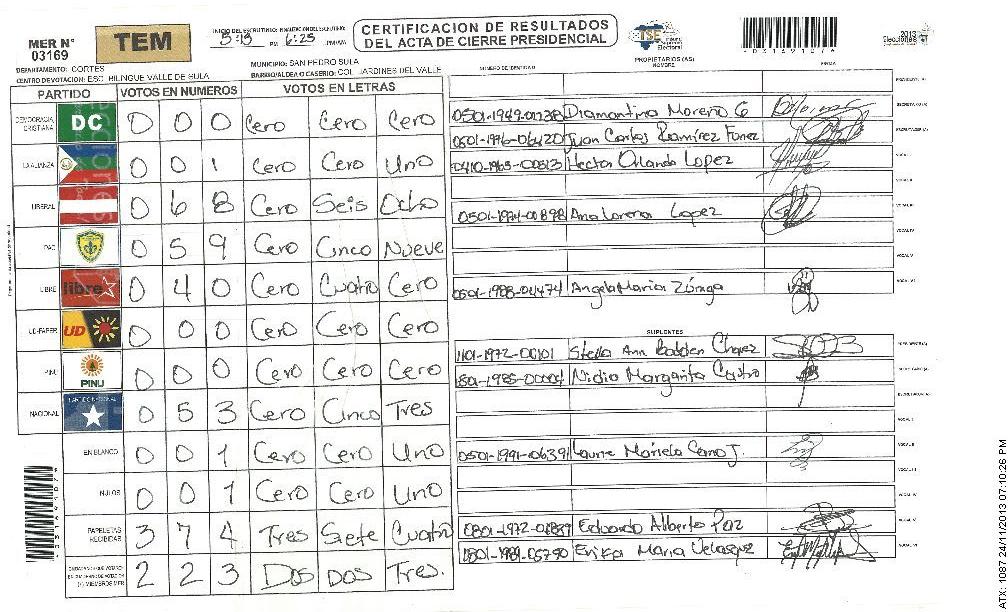 MER N° 03169
TEM
INICIO DEL ESCRUTINIO: FINALIZACION DEL ESCRUTINIO:
5:13 PM 6:25 PM/AM
CERTIFICACION DE RESULTADOS
DEL ACTA DE CIERRE PRESIDENCIAL
TSE
2013
Elecciones
DEPARTAMENTO: CORTES
MUNICIPIO: SAN PEDRO SULA
CENTRO DE VOTACION: ESC. BILINGUE VALLE DE SULA
BARRIO/ALDEA O CASERIO: COL. JARDINES DEL VALLE
PARTIDO VOTOS EN NUMEROS VOTOS EN LETRAS
DEMOCRACIA CRISTIANA DC 0 0 0 Cero Cero Cero
LA ALIANZA 0 0 1 Cero Cero Uno
LIBERAL 0 6 8 Cero Seis Ocho
PAC 0 5 9 Cero Cinco Nueve
LIBRE libre 0 4 0 Cero Cuatro Cero
UD-FAPER UD 0 0 0 Cero Cero Cero
PINU PINU 0 0 0 Cero Cero Cero
NACIONAL PARTIDO NACIONAL 0 5 3 Cero Cinco Tres
EN BLANCO 0 0 1 Cero Cero Uno
NULOS 0 0 1 Cero Cero Uno
PAPELETAS RECIBIDAS 3 7 4 Tres Siete Cuatro
2 2 3 Dos Dos Tres.
NUMERO DE IDENTIDAD PROPIETARIOS (AS) NOMBRE FIRMA
PRESIDENTE (A)
0501-1949-01238 Diamantina Moreno G SECRETARIO (A)
0501-1976-06420 Juan Carlos Ramirez Funez ESCRUTADOR (A)
0410-1965-00513 Hector Orlando Lopez VOCAL I
VOCAL II
0501-1974-00898 Ana Lorena Lopez VOCAL III
VOCAL IV
VOCAL V
0501-1988-04474 Angela Maria Zúniga VOCAL VI
SUPLENTES
1101-1972-00101 Stella Ann Bodden Chavez PRESIDENTE (A)
Nidia Margarita Castro SECRETARIO (A)
ESCRUTADOR (A)
VOCAL I
0501-1991-06391 Mariela Cano J. VOCAL II
VOCAL III
VOCAL IV
Edoardo Alberto Paz VOCAL V
0501-1989-05750 Erika Maria Velasquez VOCAL VI
ATX: 1087 24/11/2013 07:10:26 PM